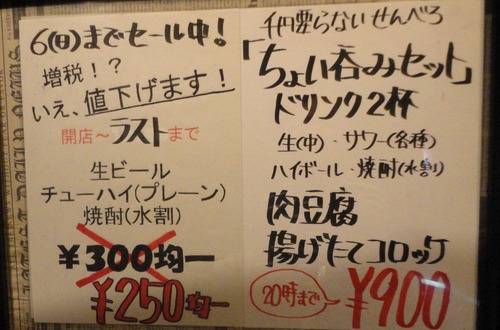 6(日)までセール中!
増税!?
いえ、値下げます!
開店~ラストまで
生ビール
チューハイ(プレーン)
焼酎(水割)
¥300均一
¥250均一
千円要らないせんべろ
「ちょい呑みセット」
ドリンク2杯
生(中)・サワー(各種)
ハイボール・焼酎(水割)
肉豆腐
揚げたてコロッケ
20時まで
¥900